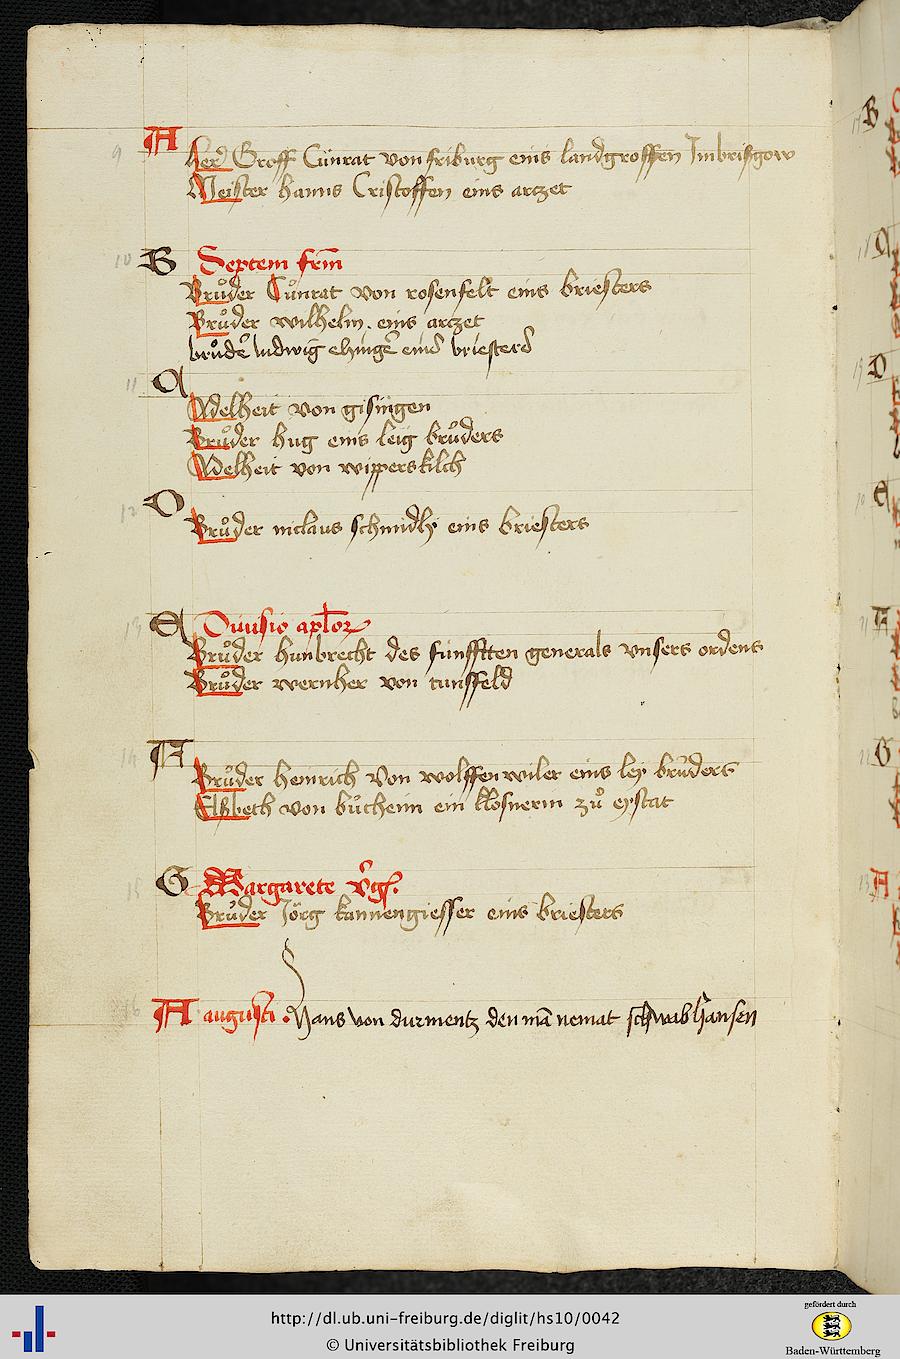 9 A
Her Groff Cünrat von friburg eins landgroffen Jm brisgow
Meister hanns Cristoffen eins arczet
10 B Septem frm
Brůder Cůnrat von rosenfelt eins briesters
Brůder wilhelm. eins arczet
brůder ludwig ehinger eins briesters
11 C
Adelheit von gisingen
Brůder hug eins leig brůders
Adelheit von wipperskilch
12 D
Brůder niclaus schmidly eins briesters
13 E Diuisio aplor
Brůder hunbrecht des fünfften generals vnsers ordens
Brůder wernher von tunffeld
14 F
Brůder heinrich von wolffenwiler eins ley brůders
Elßbeth von bůcheim ein klosnerin zů eystat
15 G Margarete vgs.
Brůder Jörg kannengiesser eins briesters
16 A augusti. Hans von durmentz den mā nemat schwab hansen
http://dl.ub.uni-freiburg.de/diglit/hs10/0042
© Universitätsbibliothek Freiburg
gefördert durch
Baden-Württemberg